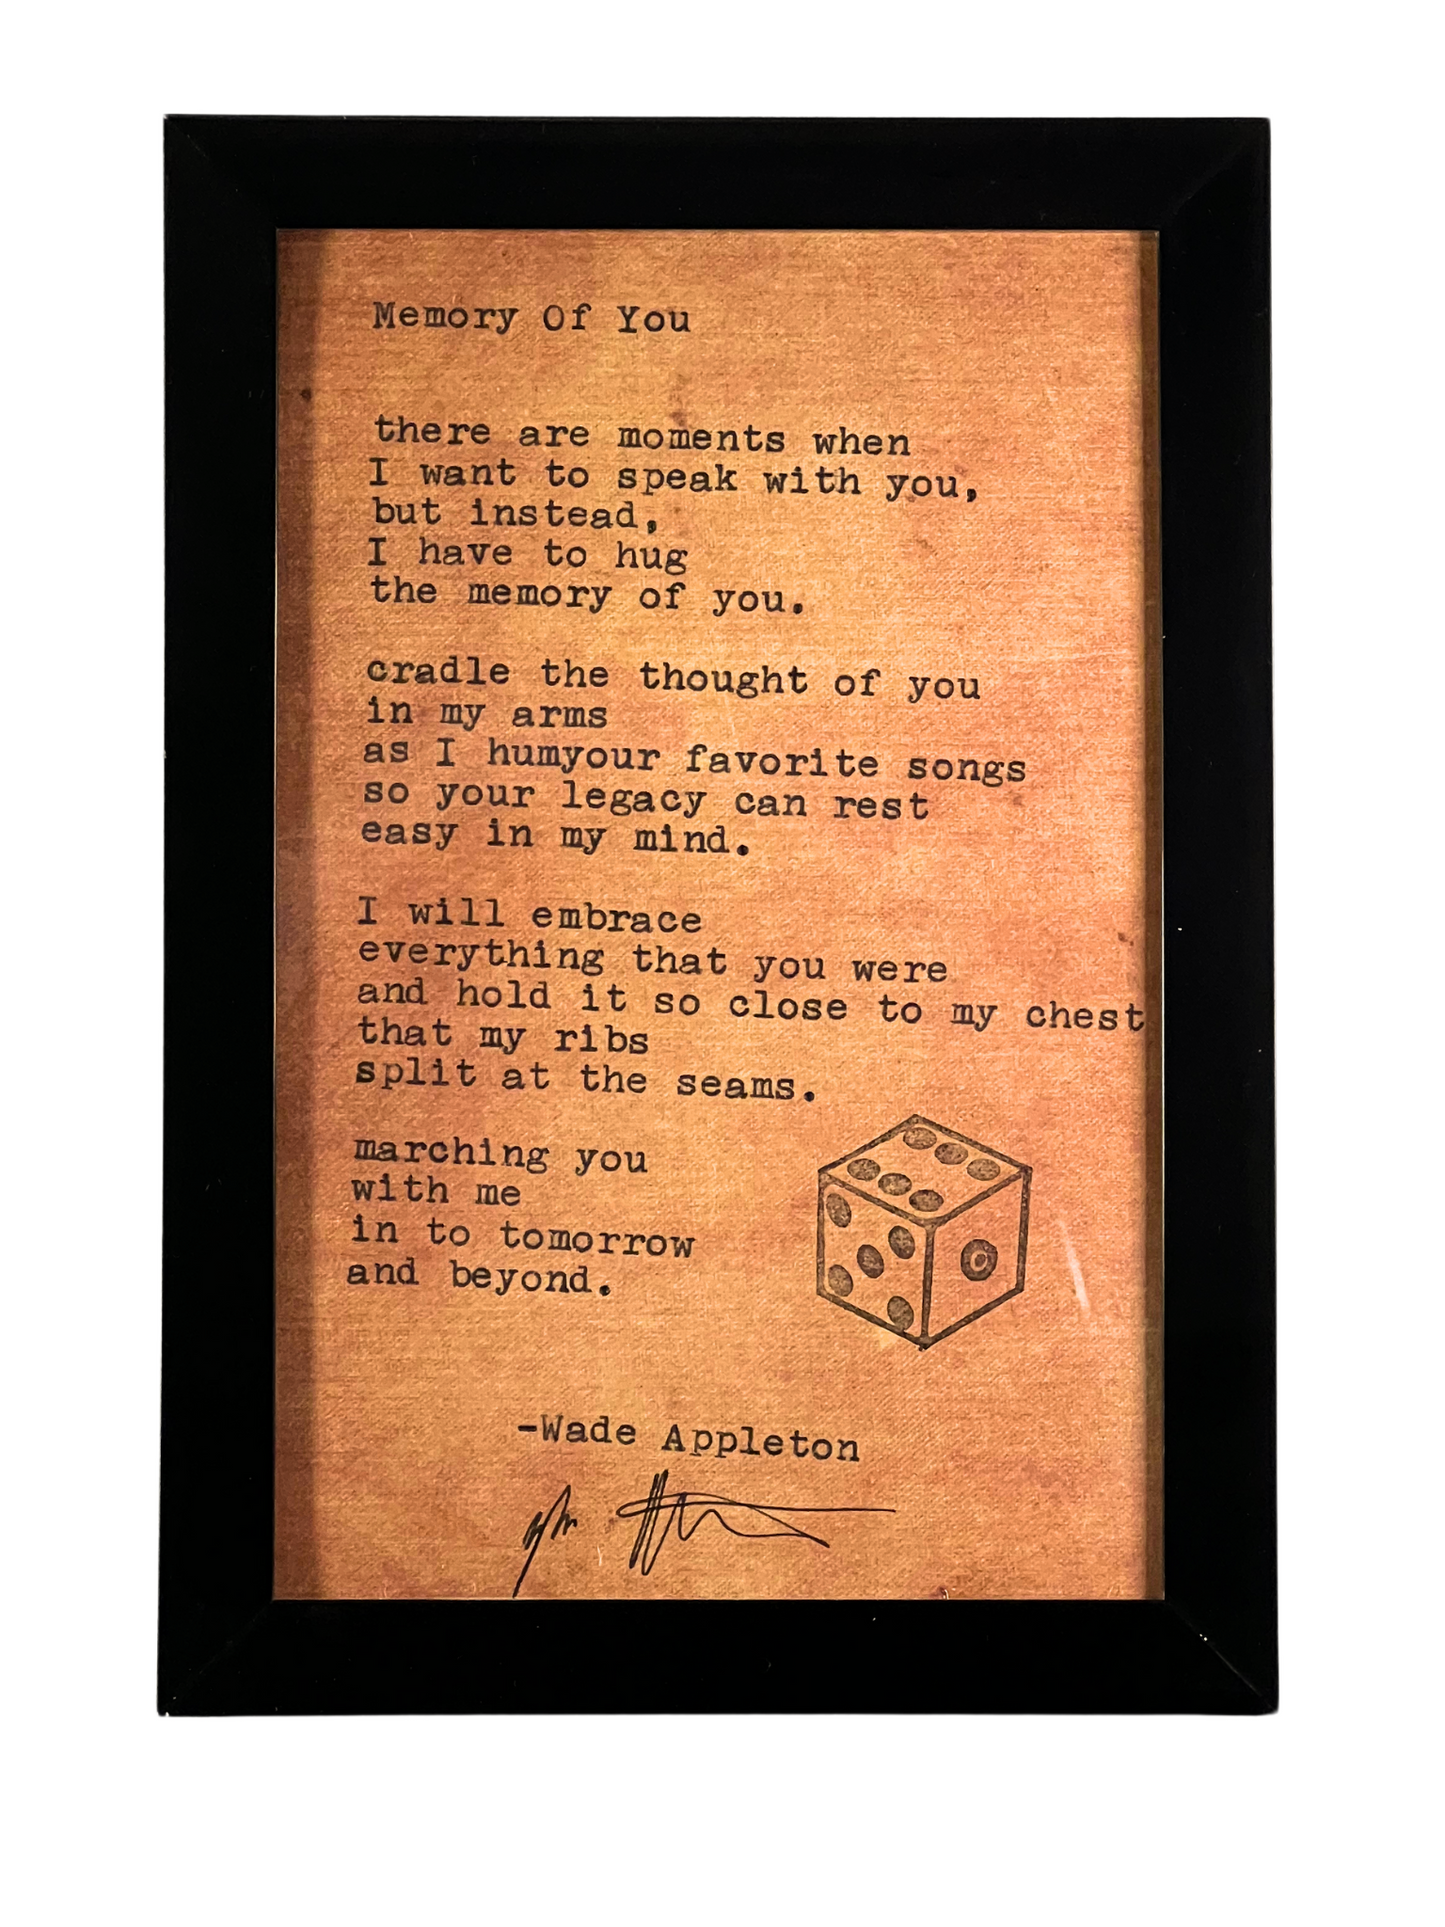 Memory Of You
there are moments when
I want to speak with you,
but instead,
I have to hug
the memory of you.
cradle the thought of you
in my arms
as I humyour favorite songs
so your legacy can rest
easy in my mind.
I will embrace
everything that you were
and hold it so close to my chest
that my ribs
split at the seams.
marching you
with me
in to tomorrow
and beyond.
-Wade Appleton